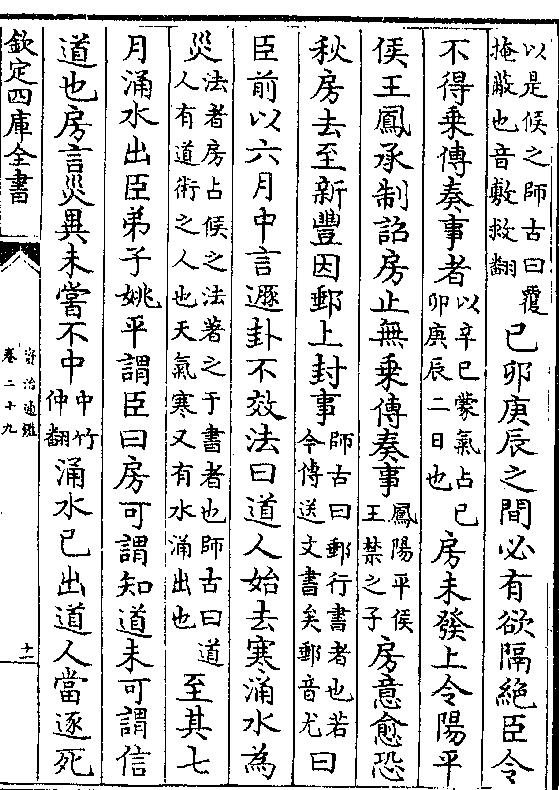 以是候之師古曰覆
掩蔽也音敷救翻
已卯庚辰之間必有欲隔絶臣令
不得乗傳奏事者
以辛巳蒙氣占已
卯庚辰二日也
房未發上令陽平
侯王鳳承制詔房止無乗傳奏事
鳳陽平侯
王禁之子
房意愈恐
秋房去至新豐因郵上封事
師古曰郵行書者也若
今傳送文書矣郵音尤
曰
臣前以六月中言遯卦不效法曰道人始去寒涌水為
災
法者房占候之法著之于書者也師古曰道
人有道術之人也天氣寒又有水涌出也
至其七
月涌水出臣弟子姚平謂臣曰房可謂知道未可謂信
道也房言災異未嘗不中
中竹
仲翻
涌水已出道人當逐死
欽定四庫全書
資治通鑑
卷二十九
十一